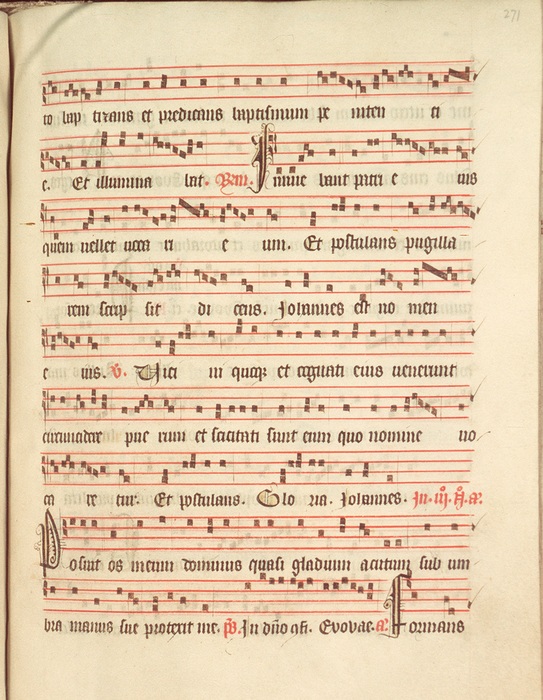 271
to bap tizans et predicans baptismum pe niten ti
e. Et illumina bat. Innue bant patri e ius
quem vellet voca ri e um. Et postulans pugilla
rem scrip sit di cens. Johannes est no men
e ius. v. Vici ni quoque et cognati eius venerunt
circumcidere pue rum et scicitati sunt eum quo nomine vo
ca re tur. Et postulans. Glo ria. Johannes. In. iij. a.
Posuit os meum dominus quasi gladium acutum sub um
bra manus sue protexit me. ps. In dno gfi. Evovae. a. Formans